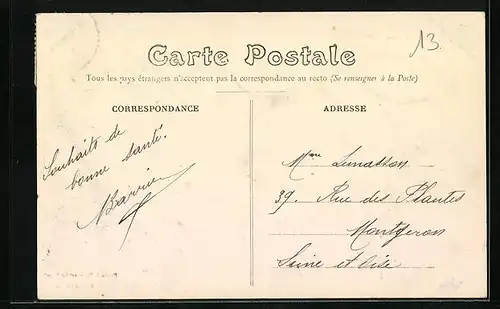 13
Carte Postale
Tous les pays étrangers n'acceptent pas la correspondance au recto (Se renseigner à la Poste)
CORRESPONDANCE
ADRESSE
Souhaits de
bonne santé.
Mme
39. Rue des Plantes
Montgeron
Seine et Oise